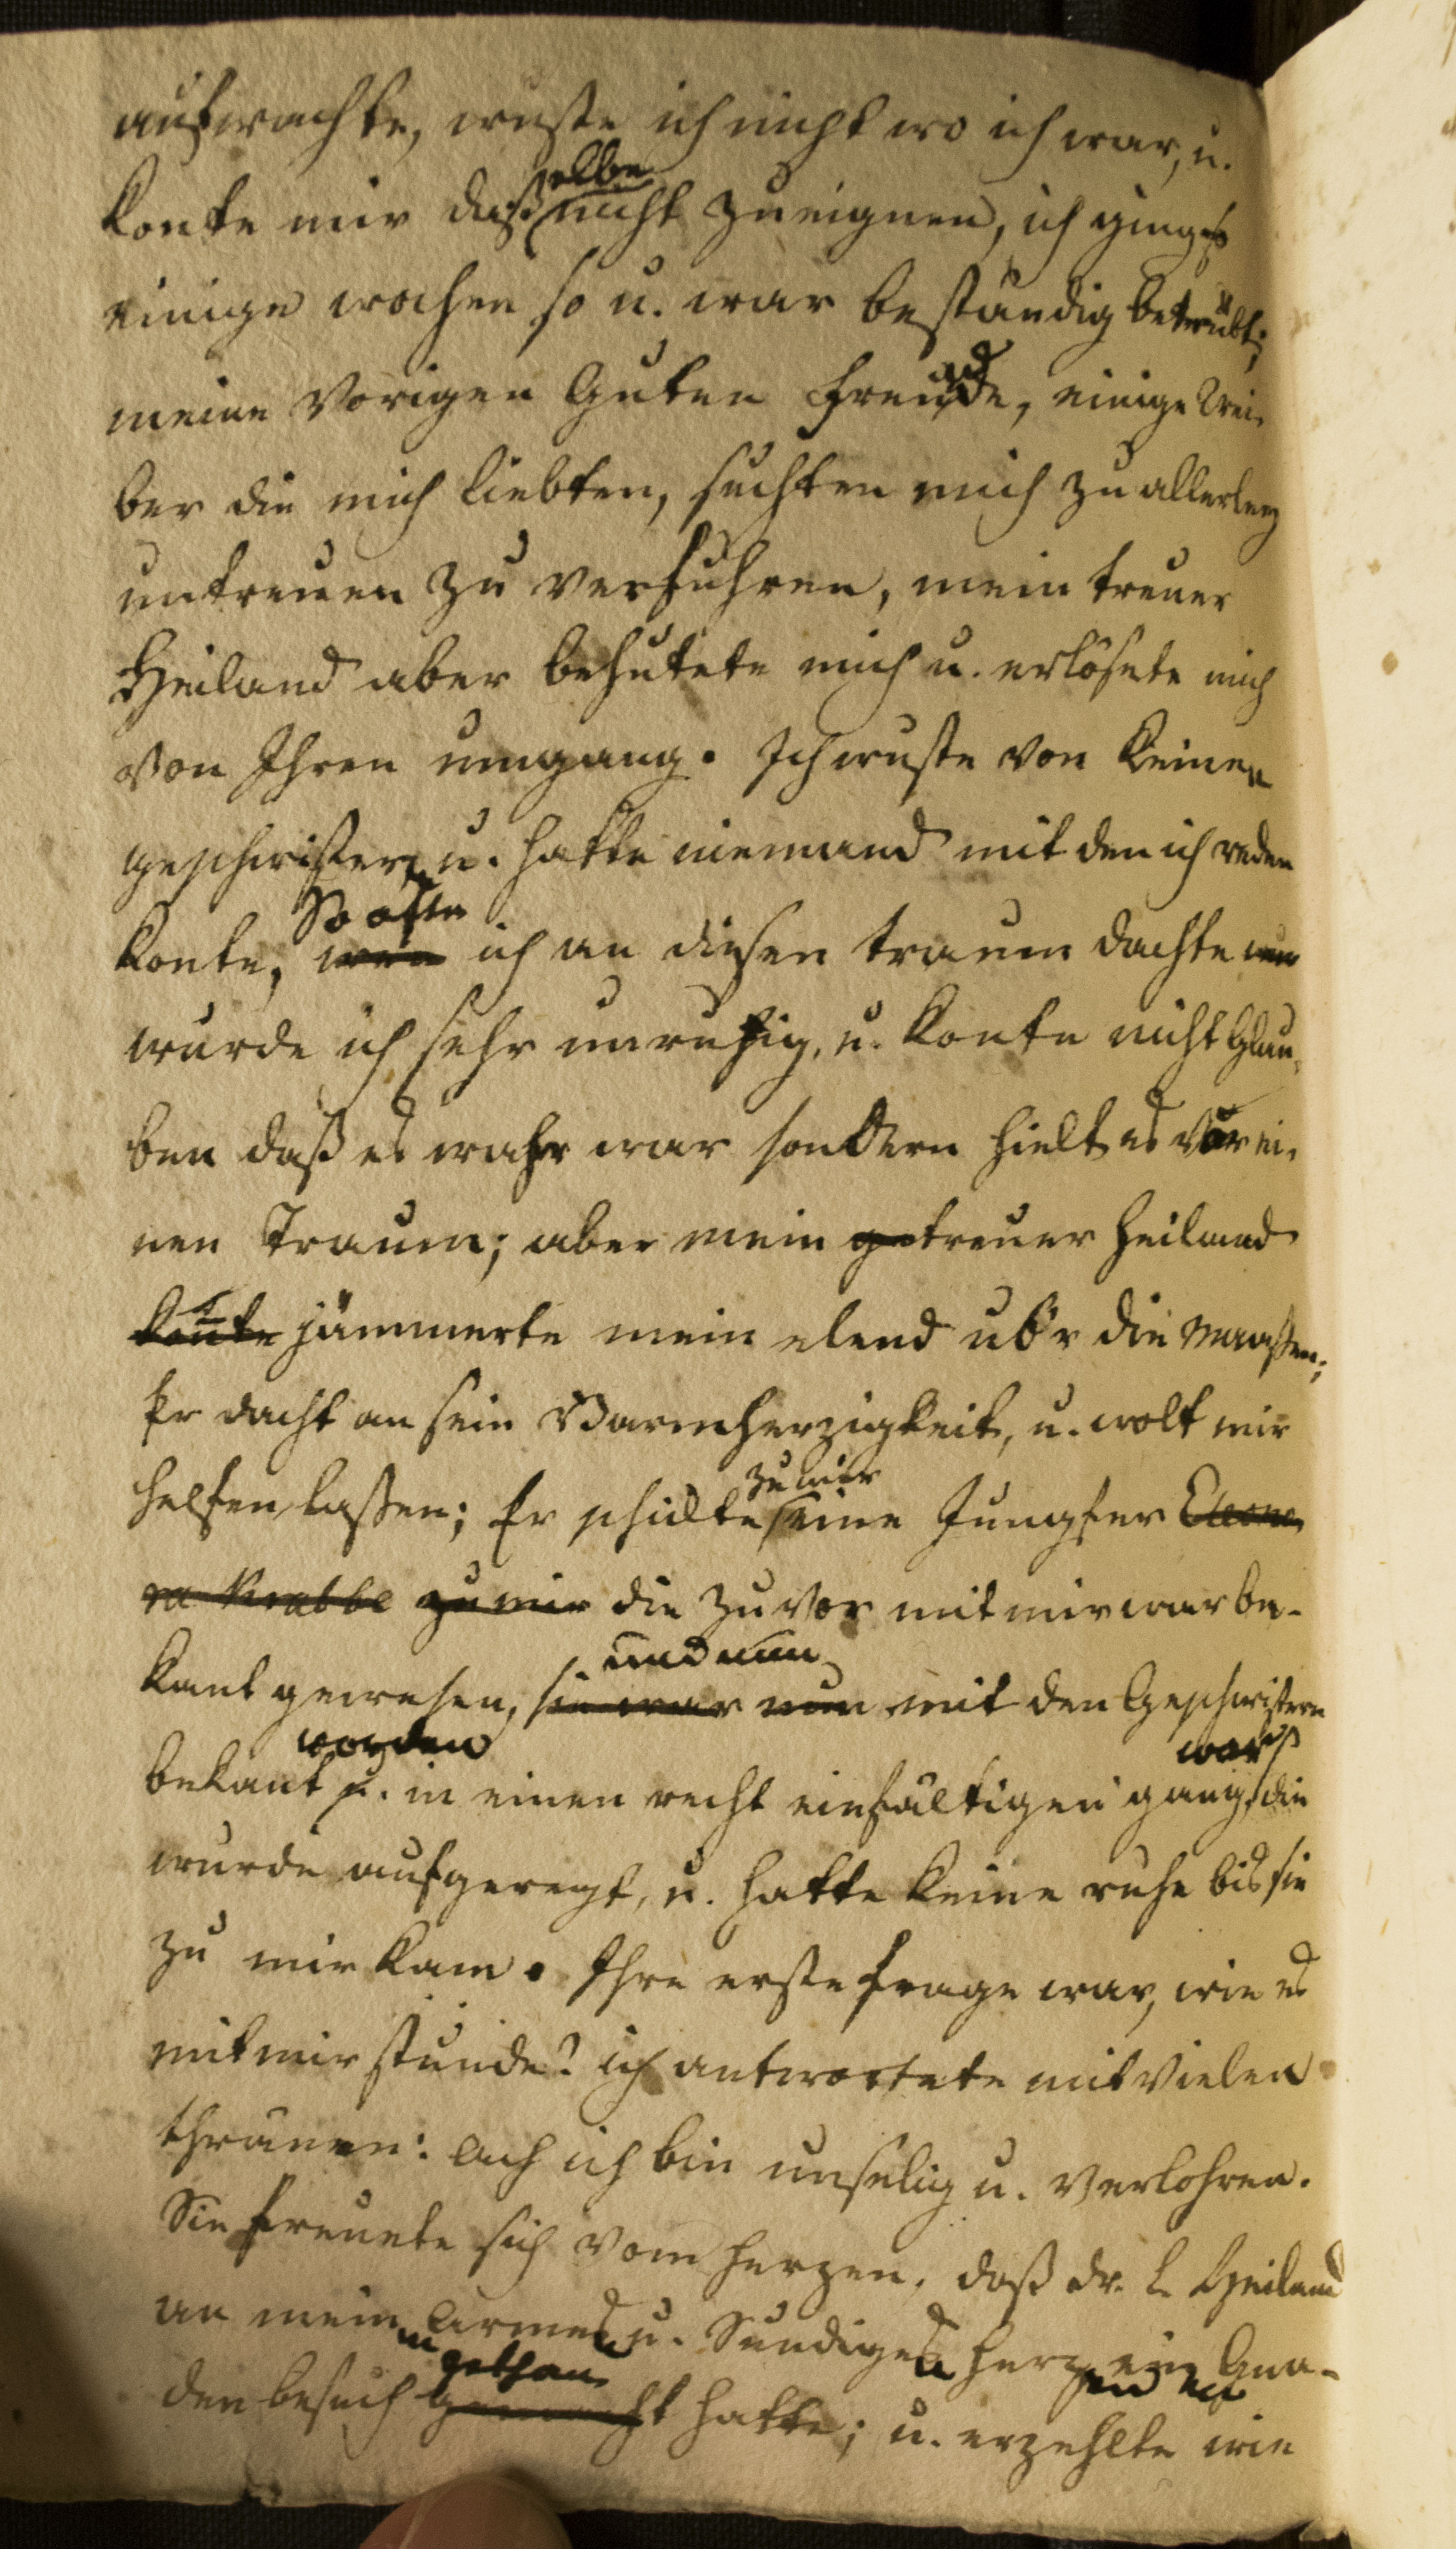 aufwachte, wuste ich nicht wo ich war, u.
selbe
konte mir daß nicht zueignen, ich ging
einige wochen so u. war beständig betrübt;
meine Vorigen Guten freunde, einige Wei-
ber die mich liebten, suchten mich zu allerley
untreuen zu verfuhren, mein treuer
Heiland aber behutete mich u. erlösete mich
von Ihren umgang. Ich wuste von keinen
geschwistern u. hatte niemand mit den ich reden
So offte
konte, wen ich an diesen traum dachte
wurde ich sehr unruhig, u. konte nicht Glau-
ben daß es wahr war sondern hielt es vor ei-
nen Traum; aber mein getreuer Heiland
konte jämmerte mein elend ub'r die Maaßen;
Er dacht an sein Barmherzigkeit, u. wolt mir
zu mir
helfen laßen; Er schickte eine Jungfer Eleono-
ra Krabbe zu mir die zu vor mit mir war be-
und nun
kant gewesen, sie war nun mit den Geschwistern
worden war
bekant u. in einen recht einfältigen gang, die
wurde aufgeregt, u. hatte keine ruhe bis sie
zu mir kam. Ihre erste frage war, wie es
mit mir stunde? ich antwortete mit Vielen
thränen: Ach ich bin unselig u. Verlohren.
Sie freuete sich vom herzen, daß dr. l. Heiland
an mein Armes u. Sundiges herz ein Gna-
gethan
den besuch gemacht hatte; u. erzehlte wie